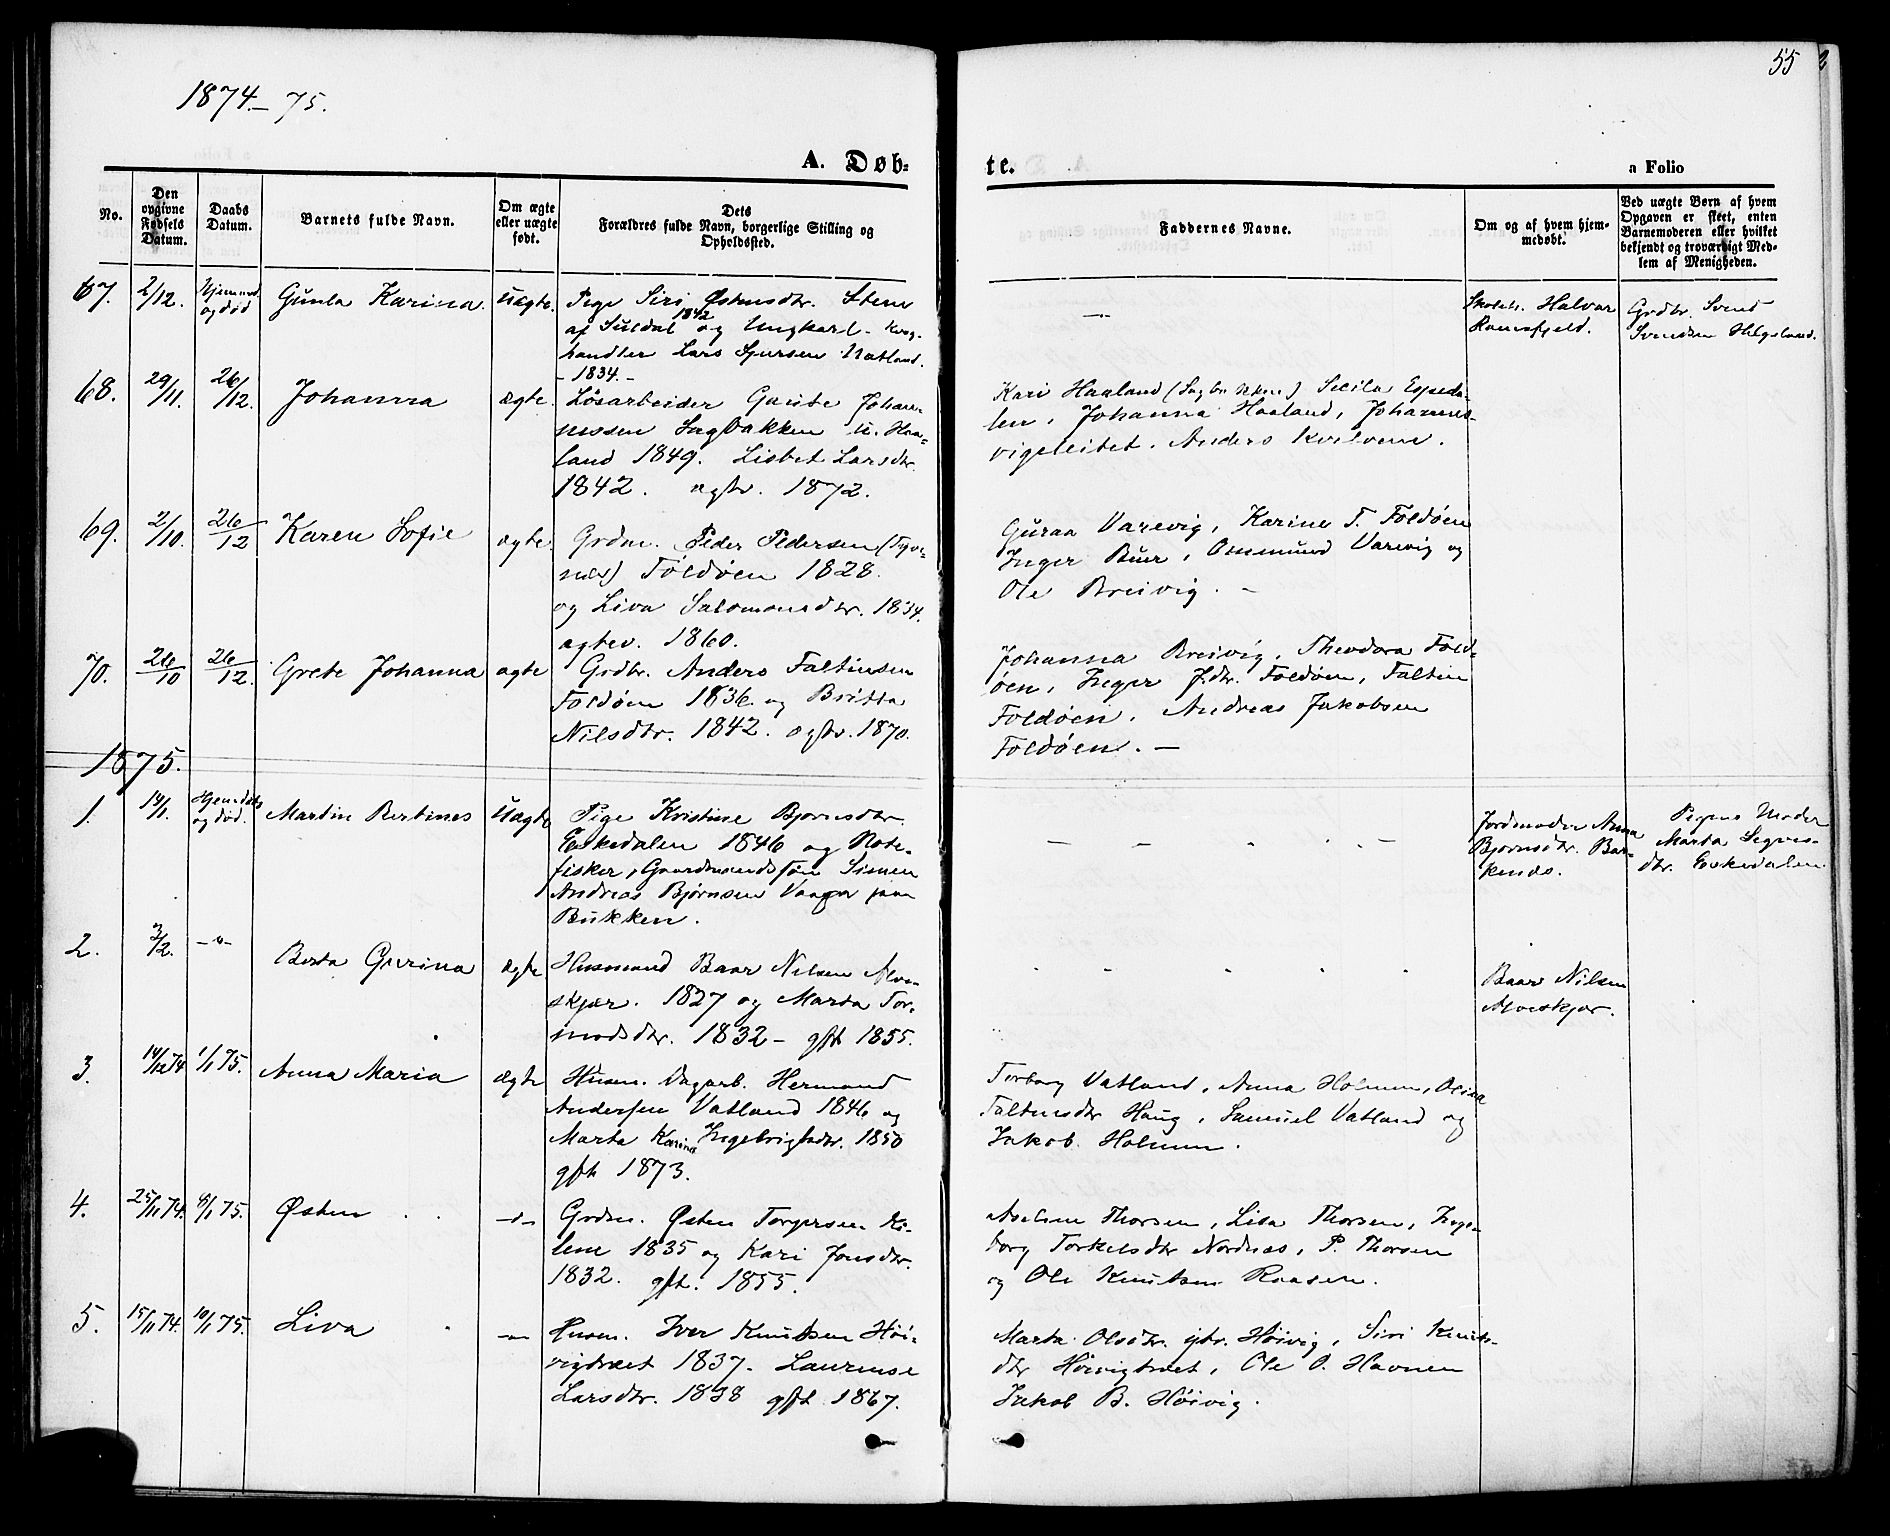 55
1874.–75.
A. Døb-
te.
a Folio
No.
Den opgivne Fødsels Datum.
Daabs Datum.
Barnets fulde Navn.
Om ægte eller uægte født.
Dets
Forældres fulde Navn, borgerlige Stilling og Opholdssted.
Faddernes Navne.
Om og af hvem hjemmedøbt.
Ved uægte Børn af hvem Opgaven er skeet, enten Barnemoderen eller hvilket bekjendt og troværdigt Medlem af Menigheden.
67. 2/12. og død Gunla Karina. Uægte.
Pige Siri Østensdtr. Stene
af Suldal 1842 og Ungkarl. Kvæg-
handler Lars Natland.
– 1834. –
–"–
Halvor
Grdbr. Svend
Svendsen Helgeland.
68. 29/11. 26/12. Johanna ægte.
Løsarbeider Gaute Johan-
nessen Sagbakken u. Haa-
land 1849. Lisbet Larsdtr.
1842. ægtv. 1872.
Kari Haaland Secila Espeda-
len, Johanna Haaland, Johannes
Anders Kvelven.
69. 2/10. 26/12 Karen Sofie ægte.
Grdm. Peder Pedersen
Foldøen 1828.
og Liva Salomonsdtr. 1834.
ægtev. 1860.
Guraa Varevig, Karine T. Foldøen
Inger Buer, Ommund Varevig og
Ole Breivig. –
70. 26/10 26/12. Grete Johanna ægte
Grdbr. Anders Faltinsen
Foldøen 1836. og Britta
Nilsdtr. 1842. ægtv. 1870.
Johanna Breivig, Theodora Fold-
øen, Inger J.dtr. Foldøen, Faltin
Foldøen, Andreas Jakobsen
Foldøen. –
1875.
1. 14/1. Hjemdøbt og død. Martin Bertines Uægte
Pige Kristine Bjornsdtr.
Eskedalen 1846 og Note-
fisker, Gaardmandssøn Simon
Andreas Bjørnsen Vaage paa
Bukken.
– – " . –
Jordmoder Anna
Bjornsdtr. Bar-
kenæs.
Pigens Moder
Marta
dtr. Eskedalen
2. 3/2. –"– Berta Gurina ægte
Husmand Baar Nilsen Alve-
skjær. 1827 og Marta Tor-
modsdtr. 1832 – gft 1855.
Baar Nilsen
Alveskjær.
3. 14/12 74 1/1 75. Anna Maria ægte
Husm. Dagarb. Hermand
Andersen Vatland 1846 og
Marta Karina Ingebrigtsdtr. 1850
gft 1873.
Torborg Vatland, Anna Holmen, Olina
Faltinsdtr Haug, Samuel Vatland og
Jakob Holmen.
4. 25/11 74. 6/1 75. Østen –"–
Grdm. Østen Torgersen Ko-
lene 1835 og Kari Jonsdtr.
1832. gft. 1855.
Thorsen, Lisa Thorsen, Inge-
borg Torkelsdtr Nordnæs, P. Thorsen
og Ole Knutsen Raasen.
5. 15/11 74. 10/1 75. Liva –"–
Husm. Iver Knutsen Høi-
vigtræet 1837. Laurense
Larsdtr. 1838 gft 1867.
Marta Olsdtr. Høivig, Siri Knuts-
dtr Høivigtræet, Ole O. Havnen
Jakob B. Høivig.